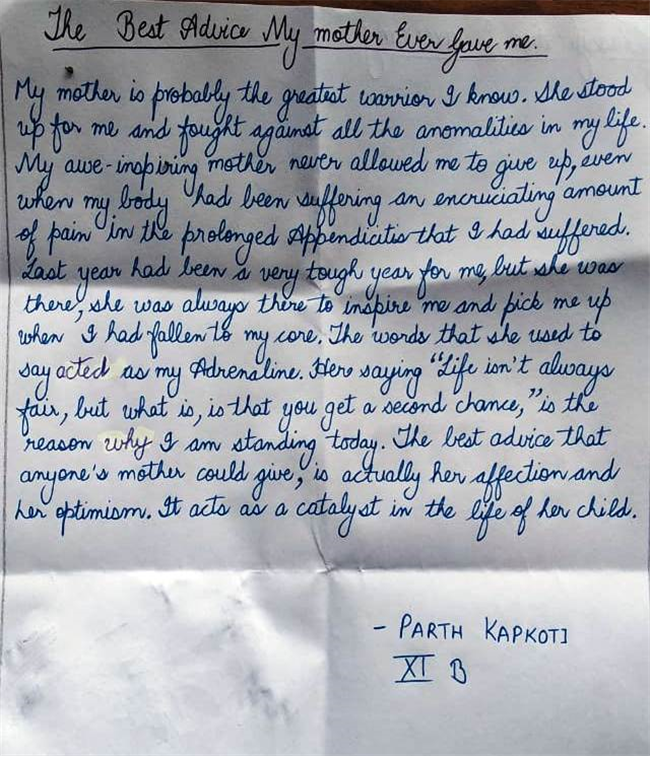 The Best Advice My mother Ever Gave me.
My mother is probably the greatest warrior I know. She stood
up for me and fought against all the anomalities in my life.
My awe-inspiring mother never allowed me to give up, even
when my body had been suffering an encruciating amount
of pain in the prolonged Appendicitis that I had suffered.
Last year had been a very tough year for me, but she was
there, she was always there to inspire me and pick me up
when I had fallen to my core. The words that she used to
say acted as my Adrenaline. Hero saying "Life isn't always
fair, but what is, is that you get a second chance," is the
reason why I am standing today. The best advice that
anyone's mother could give, is actually her affection and
her optimism. It acts as a catalyst in the life of her child.
- PARTH KAPKOTI
XI B